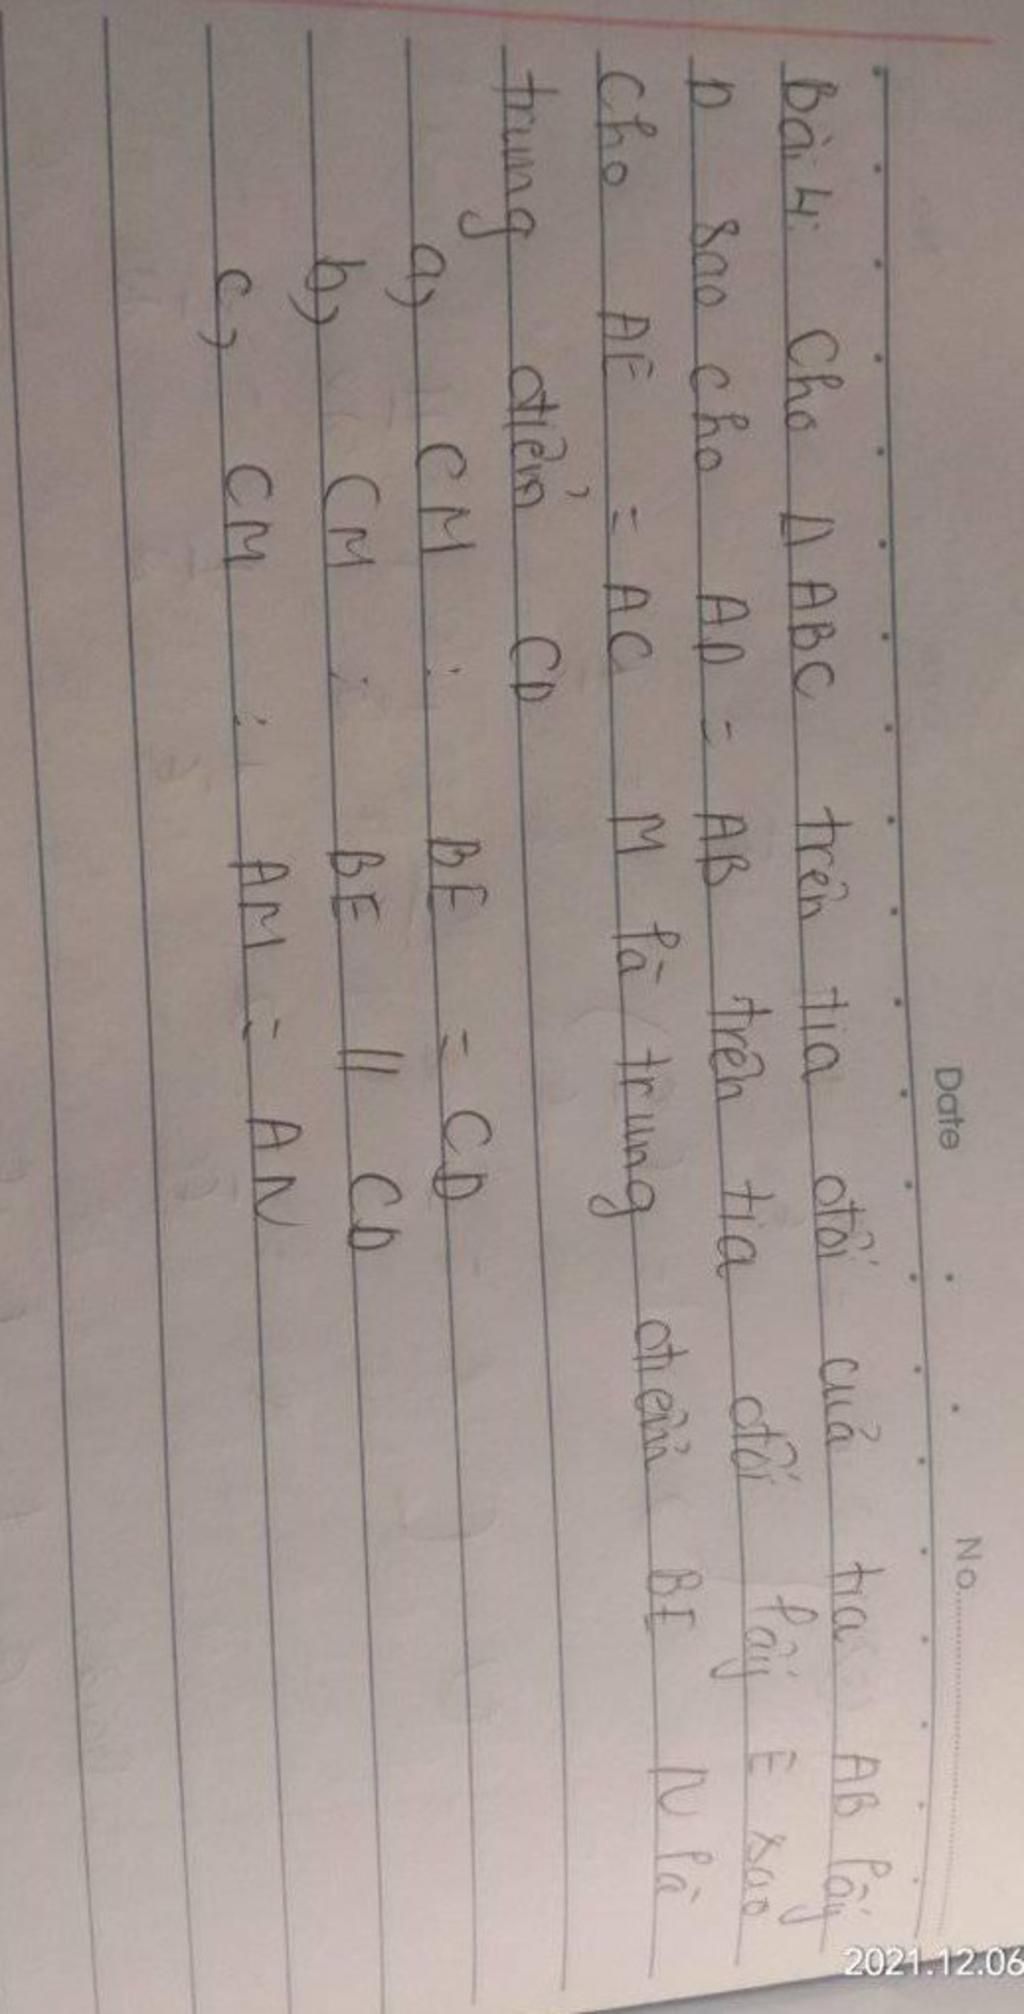 Date
No
Bài 4: Cho Δ ABC trên tia đối của tia AB lấy
D sao cho AD = AB trên tia đối lấy E sao
Cho AE = AC M là trung điểm BE N là
trung điểm CD
a, CM : BE = CD
b, CM : BE // CD
c, CM : AM = AN
2021.12.06